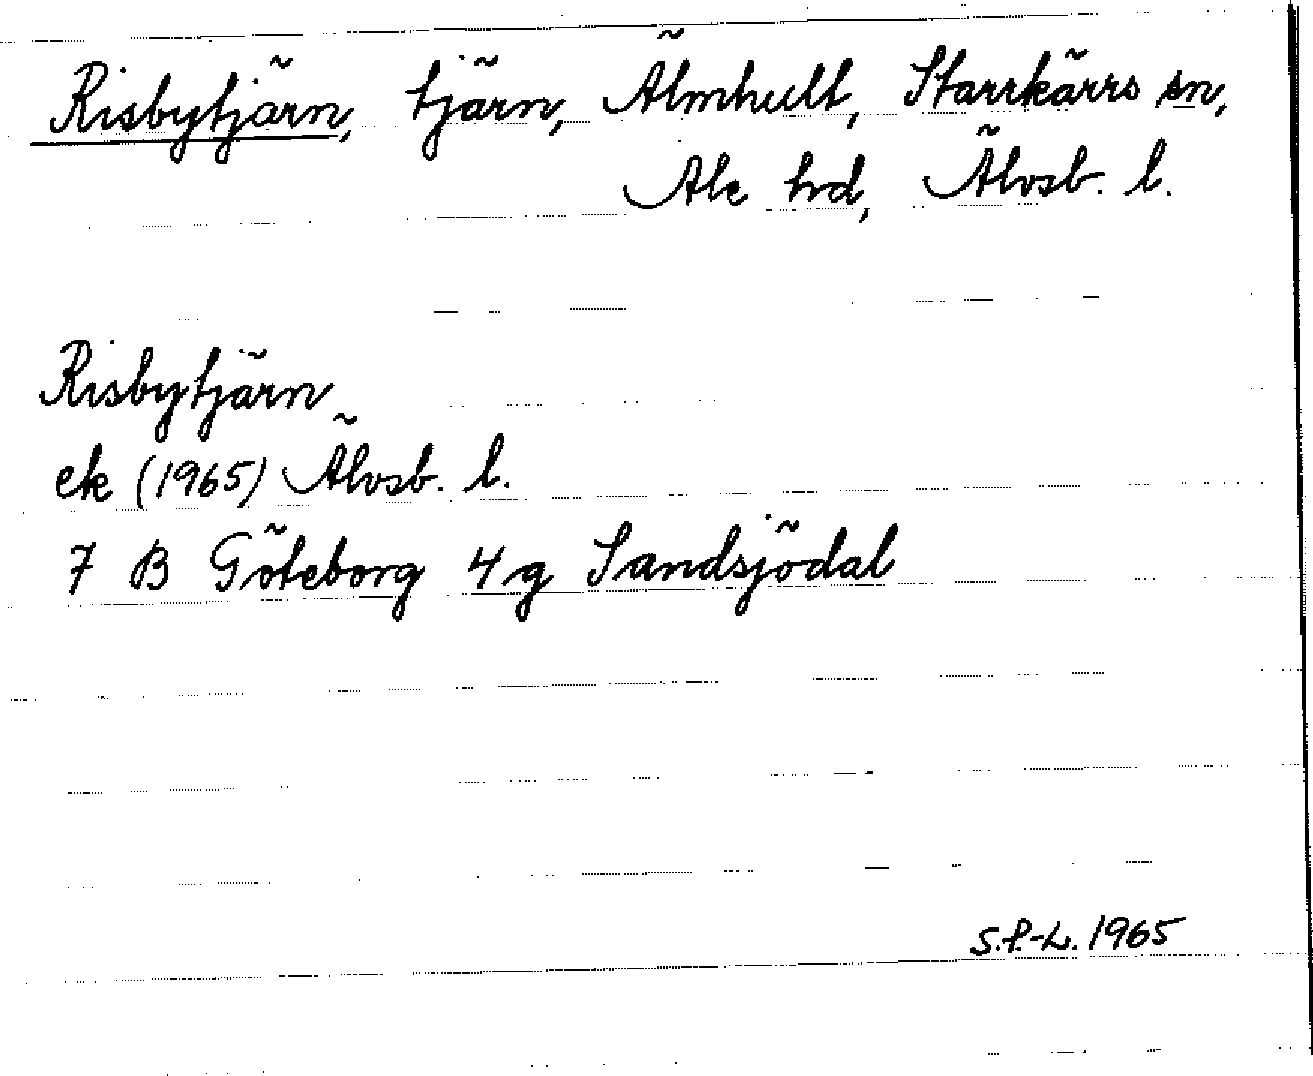 Risbytjärn, tjärn, Älmhult, Starrkärrs sn,
Ale hrd, Älvsb. l.
Risbytjärn
ek (1965) Älvsb. l.
7 B Göteborg 4 g Sandsjödal
S.P.-L. 1965